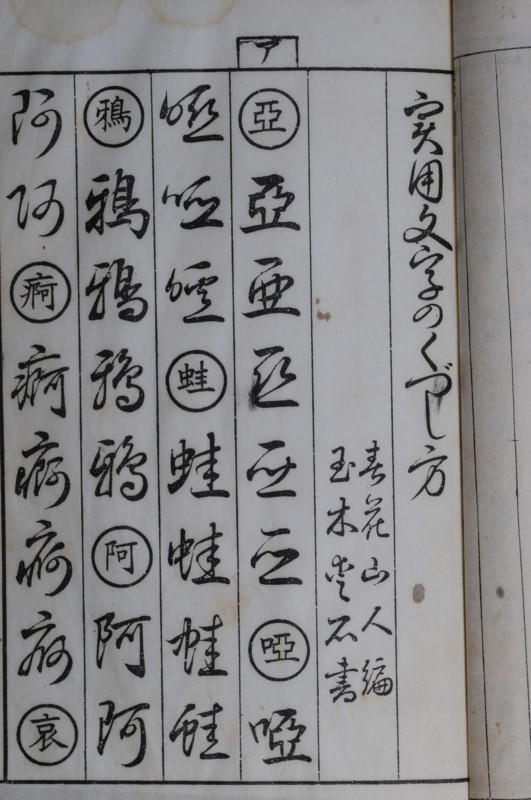 ア
実用文字のくづし方
春花山人編
玉木愛石書
亞 亞 亞 亞 亞 亞 啞 啞
啞 啞 啞 蛙 蛙 蛙 蛙 蛙
鴉 鴉 鴉 鴉 鴉 阿 阿 阿
阿 阿 痾 痾 痾 痾 痾 哀